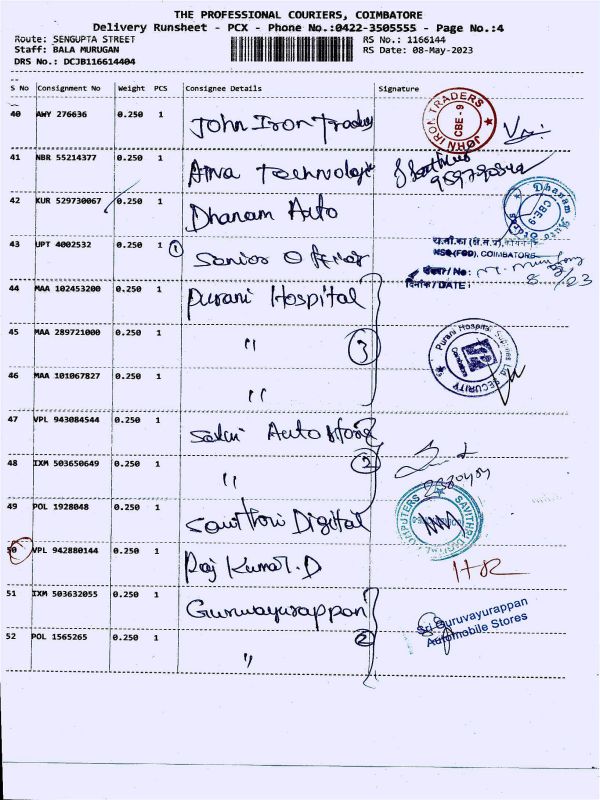 THE PROFESSIONAL COURIERS, COIMBATORE
Delivery Runsheet - PCX - Phone No.:0422-3505555 - Page No.:4
Route: SENGUPTA STREET RS No.: 1166144
Staff: BALA MURUGAN RS Date: 08-May-2023
DRS No.: DCJB116614404
S No Consignment No Weight PCS Consignee Details Signature
40 AWY 276636 0.250 1 John Iron Traders
JOHN IRON TRADERS CBE-9
41 NBR 55214377 0.250 1 Technologie
42 KUR 529730067 0.250 1 Dhanam Auto
Dhanam Auto CBE9
43 UPT 4002532 0.250 1 1 Senior Officer
NSO(FOD), COIMBATORE
संख्या/No:
दिनांक/DATE: 8 /23
44 MAA 102453200 0.250 1 Purani Hospital
45 MAA 289721000 0.250 1 " 3
Purani Hospital Supplies SECURITY
46 MAA 101067827 0.250 1 "
47 VPL 943084544 0.250 1 Sakri Auto Store
48 IXM 503650649 0.250 1 " 2
49 POL 1928048 0.250 1 Savithri Digital
SAVITHRI DIGITAL COMPUTERS
50 VPL 942880144 0.250 1 Raj Kumar.D
51 IXM 503632055 0.250 1 Guruvayurappan
Sri Guruvayurappan
Automobile Stores
52 POL 1565265 0.250 1 " 2